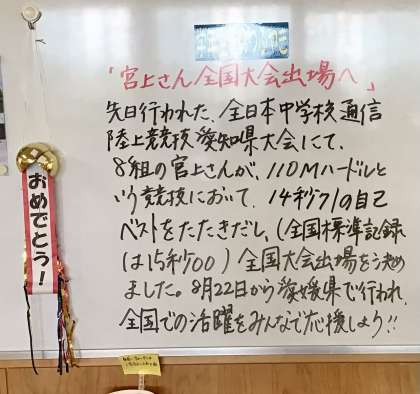 「宮上さん全国大会出場へ」
先日行われた、全日本中学校通信
陸上競技愛知県大会にて、
8組の宮上さんが、110Mハードルと
いう競技において、14秒71の自己
ベストをたたきだし、(全国標準記録
は15秒00)全国大会出場を決め
ました。8月22日から愛媛県で行われ、
全国での活躍をみんなで応援しよう!!
おめでとう!